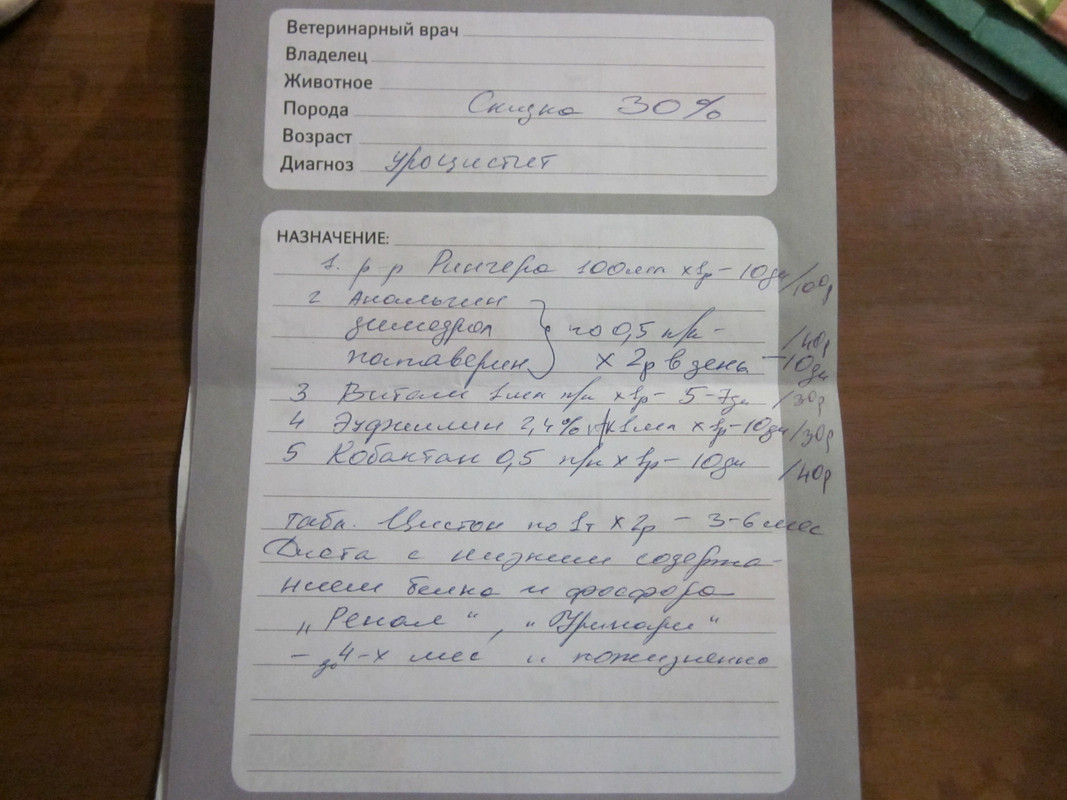 Ветеринарный врач
Владелец
Животное
Порода Скидка 30%
Возраст
Диагноз Уроцистит
НАЗНАЧЕНИЕ:
1. р-р Рингера 100мл х 1р – 10дн /100р
2 Анальгин
димедрол } по 0,5 п/к – /40р
папаверин х 2р в день – 10дн
3 Витам 1мл п/к х 1р – 5-7дн /30р
4 Эуфиллин 2,4% 1мл х 1р – 10дн /30р
5 Кобактан 0,5 п/к х 1р – 10дн /40р
табл. Цистон по 1т х 2р – 3-6 мес
Диета с низким содержа-
нием белка и фосфора
„Ренал“, „Уринари“
– до 4-х мес и пожизненно